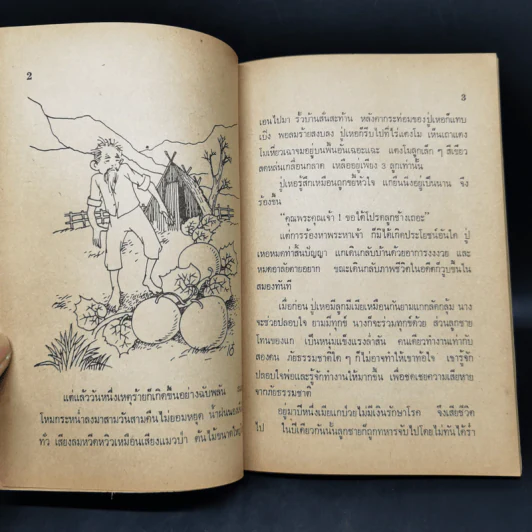 2
แต่แล้ววันหนึ่งเหตุร้ายก็เกิดขึ้นอย่างฉับพลัน
โหมกระหน่ำลงมาสามวันสามคืนไม่ยอมหยุด
ทั่ว เสียงลมหวีดหวิวเหมือนเสียงแมวป่า
3
เอนไปมา รั้วบ้านสั่นสะท้าน หลังคากระท่อมของปู่เหอก็แทบ
เปิง พอลมร้ายสงบลง ปู่เหอก็รีบไปที่ไร่แตงโม เห็นเถาแตง
ใบเหี่ยวเฉาจมอยู่บนพื้นอันเฉอะแฉะ แตงโมลูกเล็ก ๆ สีเขียว
สดหล่นเกลื่อนกลาด เหลืออยู่เพียง 3 ลูกเท่านั้น
ปู่เหอรู้สึกเหมือนถูกขยี้หัวใจ แกยืนนิ่งอยู่เป็นนาน จึง
ร้องขึ้น
“คุณพระคุณเจ้า ! ขอได้โปรดลูกช้างเถอะ”
แต่การร้องหาพระหาเจ้า ก็มิได้เกิดประโยชน์อันใด ปู่
เหอหมดท่าสิ้นปัญญา แกเดินกลับบ้านด้วยอาการงงงวย และ
หมดอาลัยตายอยาก ขณะเดินกลับภาพชีวิตในอดีตก็วูบขึ้นใน
สมองทันที
เมื่อก่อน ปู่เหอมีลูกมีเมียเหมือนกันยามแกกลัดกลุ้ม นาง
จะช่วยปลอบใจ ยามมีทุกข์ นางก็จะร่วมทุกข์ด้วย ส่วนลูกชาย
โทนของแก เป็นหนุ่มแข็งแรงล่ำสัน คนเดียวทำงานเท่ากับ
สองคน ภัยธรรมชาติใด ๆ ก็ไม่อาจทำให้เขาท้อใจ เขารู้จัก
ปลอบใจพ่อและรู้จักทำงานให้มากขึ้น เพื่อชดเชยความเสียหาย
จากภัยธรรมชาติ
อยู่มาปีหนึ่งเมียแกป่วยไม่มีเงินรักษาโรค จึงเสียชีวิต
ไป ในปีเดียวกันนั้นลูกชายก็ถูกทหารจับไปโดยไม่ทันได้ร่ำ